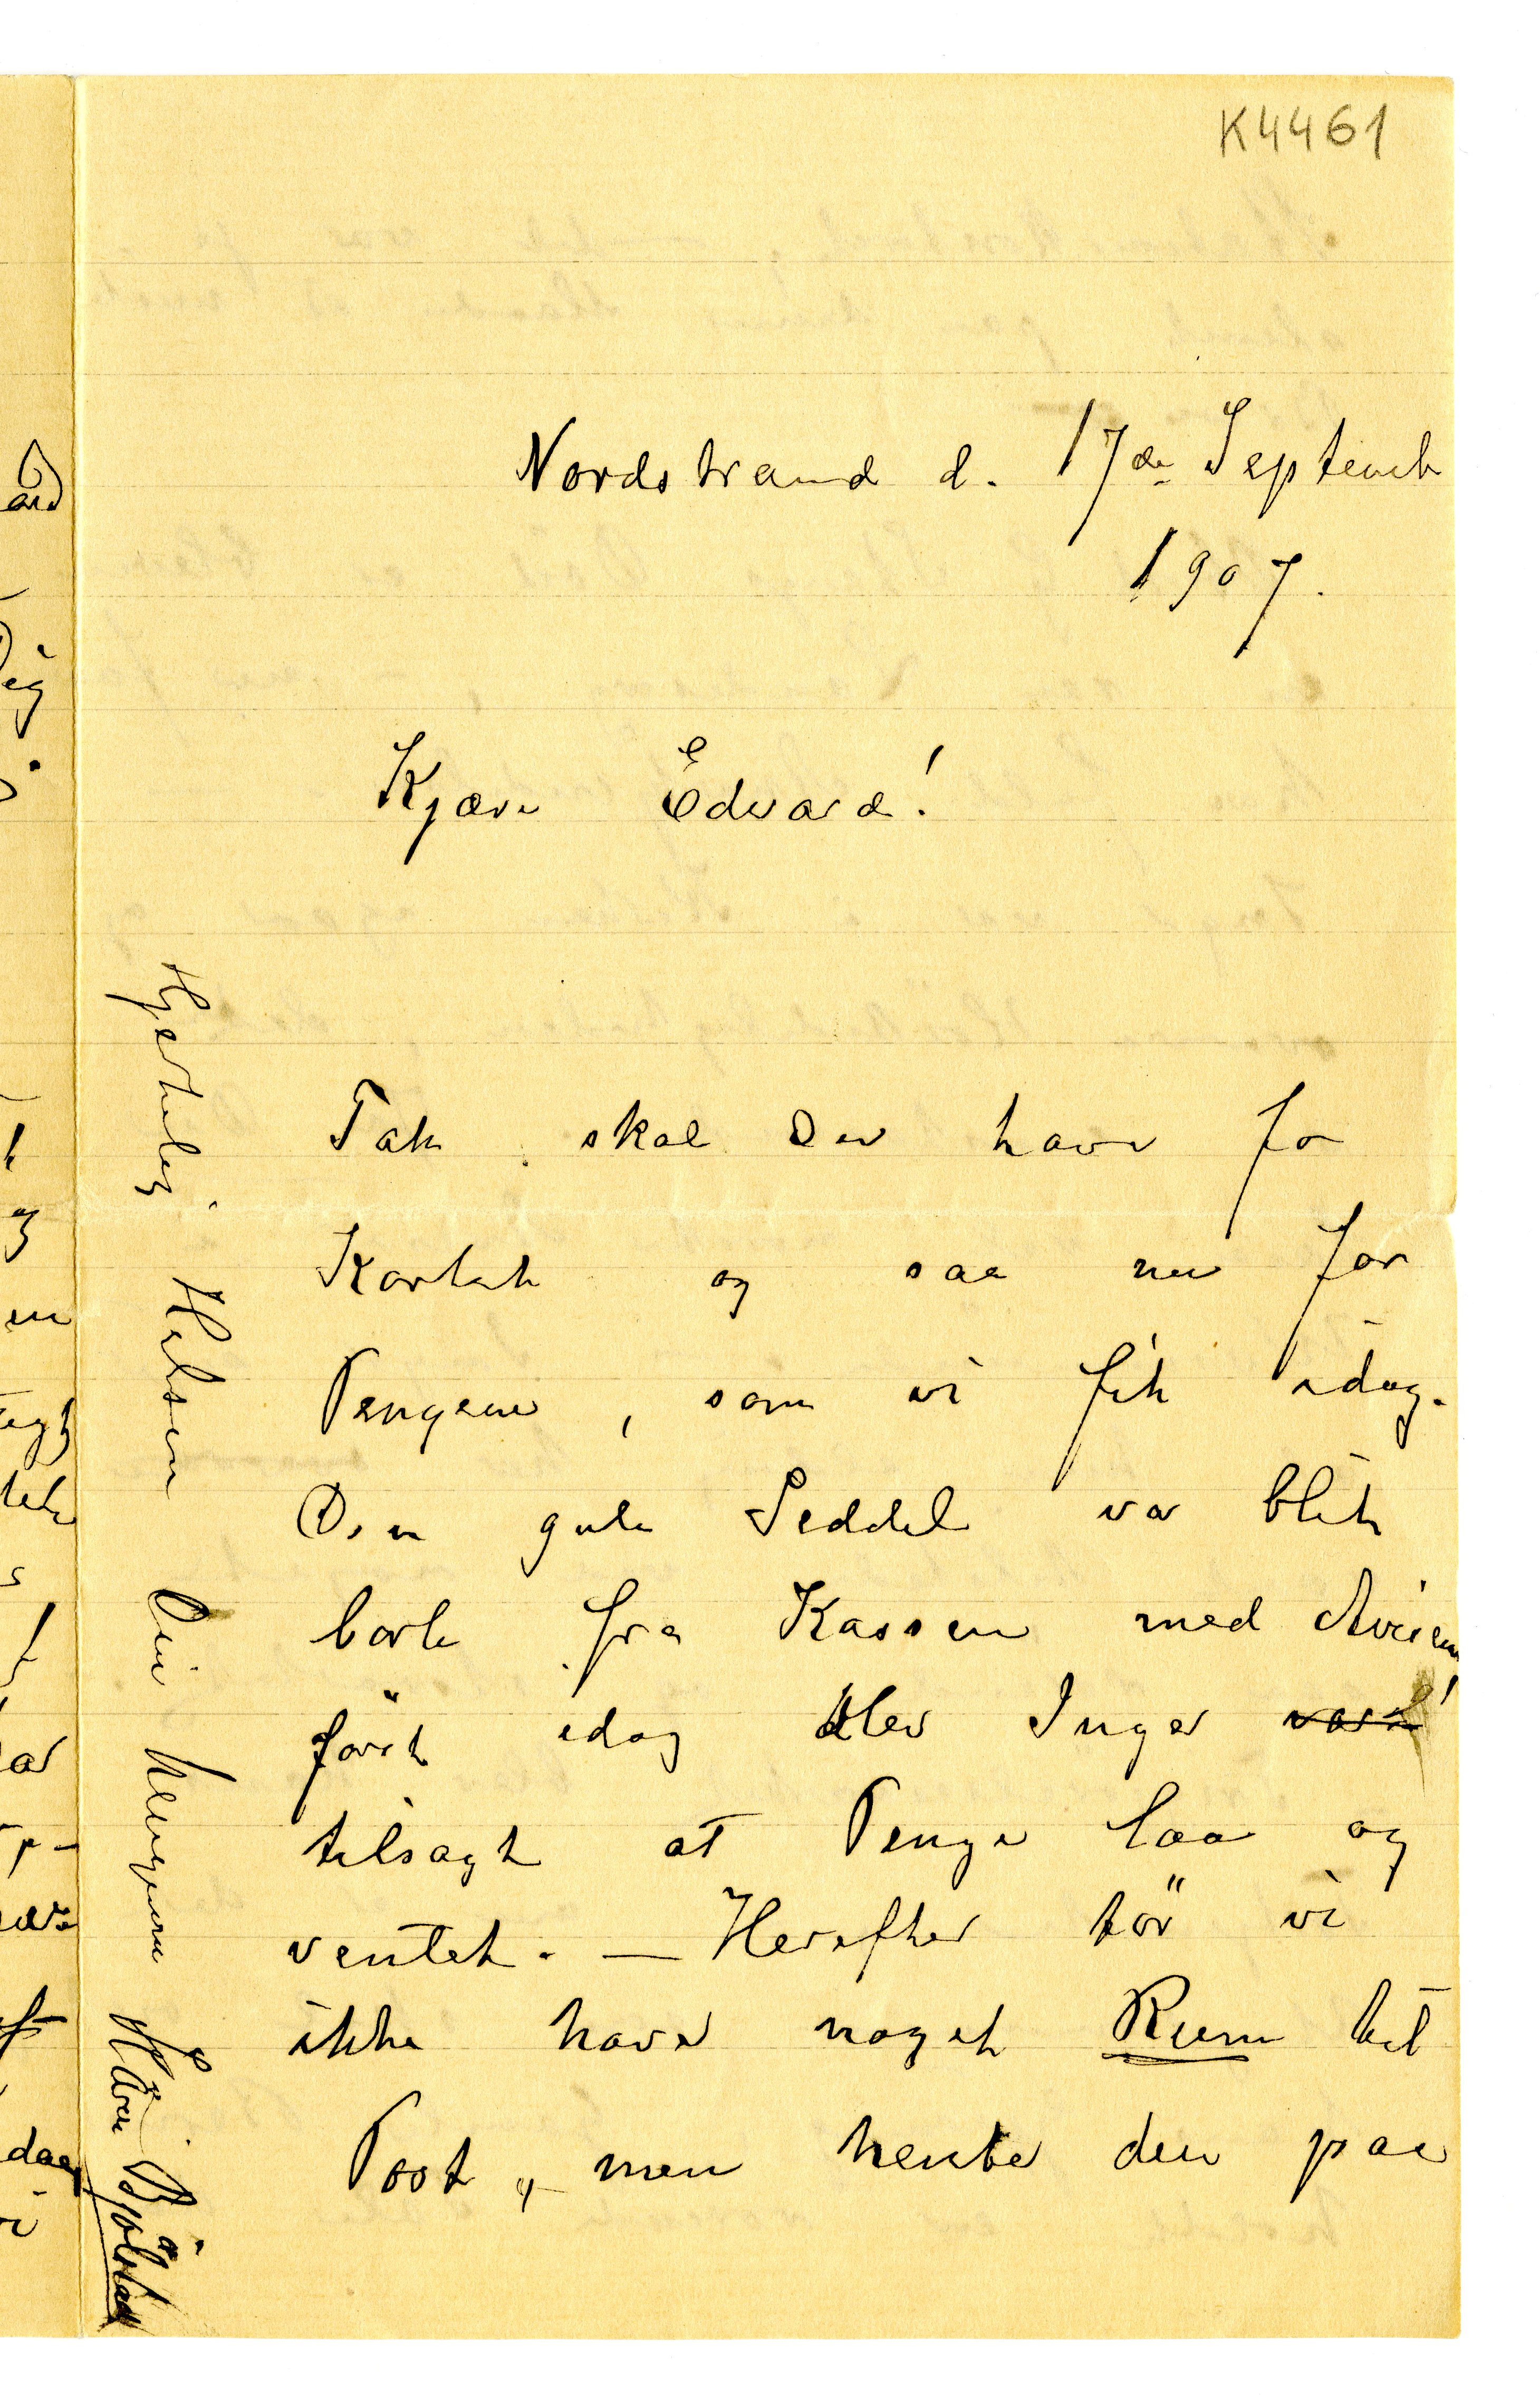 K4461
Nordstrand d. 17de Septemb
1907.
Kjære Edvard!
Tak skal Du have for
Kortet og saa nu for
Pengene, som vi fik idag.
Den gule Seddel var blit
borte fra Kassen med Avisen,
först idag blev Inger
tilsagt at Penge laa og
ventet. — Herefter tör vi
ikke have noget Rum til
Post, men hente den paa
Hjertelig Hilsen Din hengivne
Karen Bjölstad